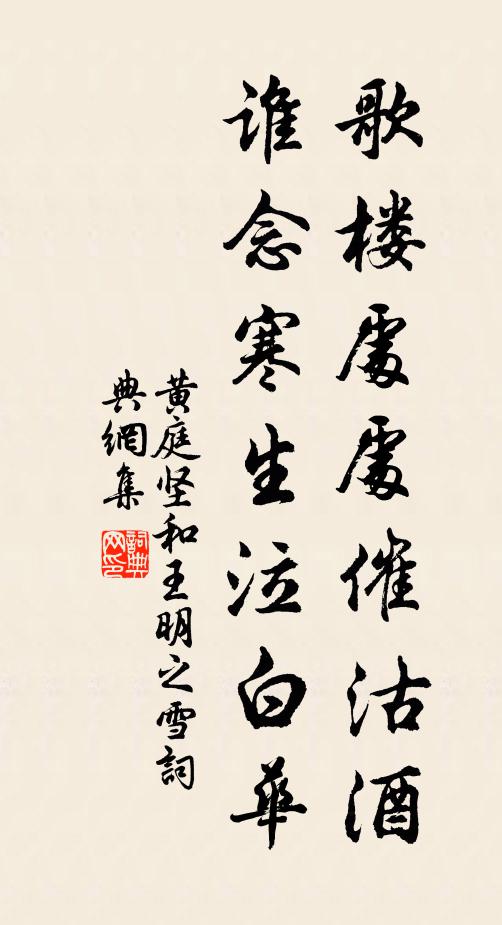 歌楼處處催沽酒
谁念寒生泣白華
黄庭坚和王明之雪詞
典網集
詞典网印